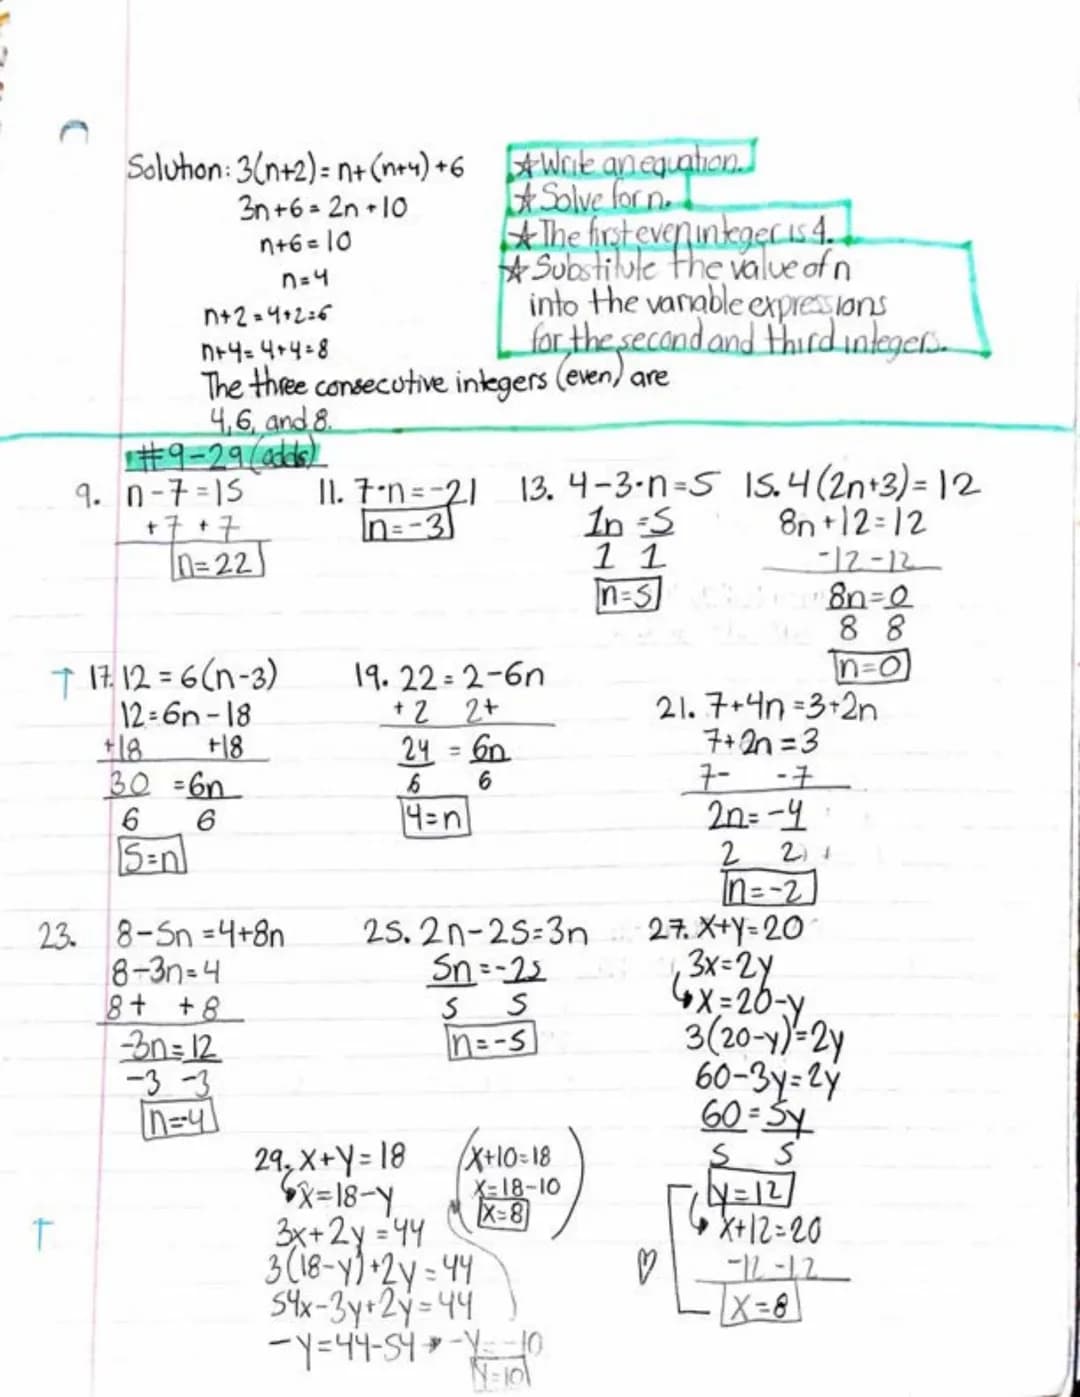 Solution: 3(n+2) = n+(n+4)+6
3n+6 = 2n+10
n+6 = 10
n=4
n+2=4+2=6
n+4=4+4=8
The three consecutive integers (even) are
4, 6, and 8.
☆ Write an equation.
☆ Solve for n.
☆ The first even integer is 4.
☆ Substitute the value of n
into the variable expressions
for the second and third integers.
#9-29 (odds)
9. n-7=15
+7 +7
n=22
11. 7·n=-21
n=-3
13. 4-3·n=5
1n=5
1 1
n=5
15. 4(2n+3)=12
8n+12=12
-12 -12
8n=0
8 8
n=0
↑ 17. 12=6(n-3)
12=6n-18
+18 +18
30 =6n
6 6
5=n
19. 22=2-6n
+2 2+
24 = 6n
6 6
4=n
21. 7+4n=3+2n
7+2n=3
7- -7
2n=-4
2 2
n=-2
23. 8-5n=4+8n
8-3n=4
8+ +8
-3n=12
-3 -3
n=-4
25. 2n-25=3n
5n=-25
5 5
n=-5
27. x+y=20
3x=2y
x=20-y
3(20-y)=2y
60-3y=2y
60=5y
5 5
y=12
x+12=20
-12 -12
x=8
29. x+y=18
x=18-y
3x+2y=44
3(18-y)+2y=44
54x-3y+2y=44
-y=44-54 → -y=-10
y=10
x+10=18
x=18-10
x=8